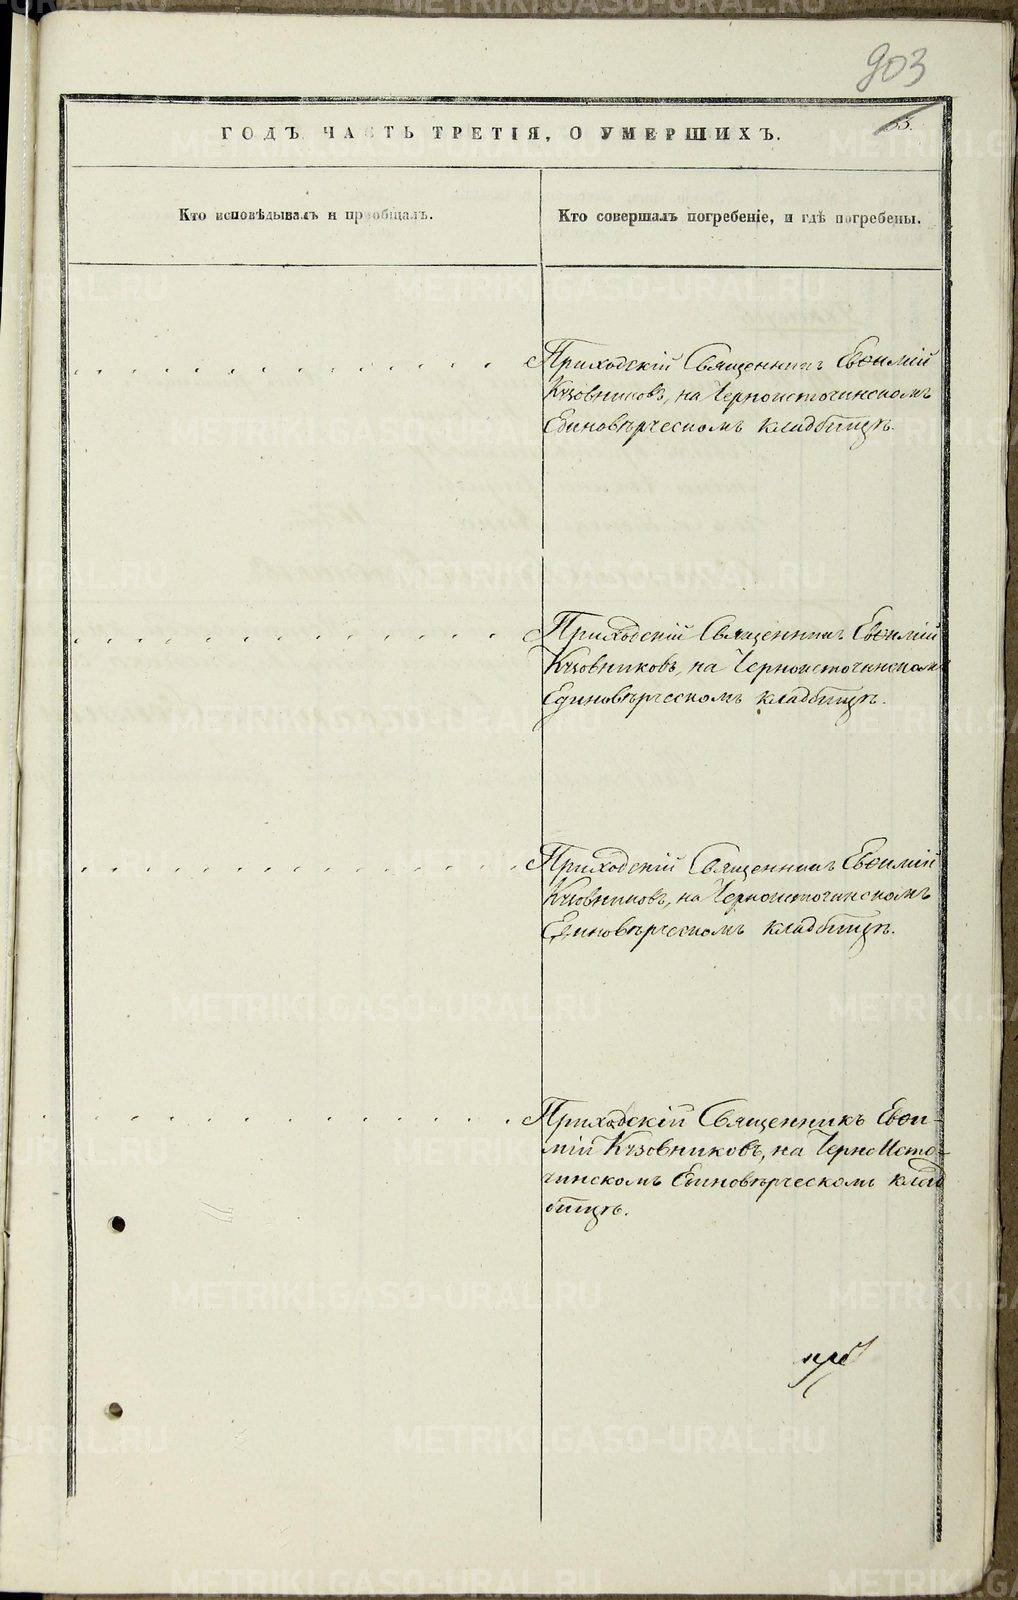 903
ГОДЪ ЧАСТЬ ТРЕТІЯ, О УМЕРШИХЪ.
Кто исповѣдывалъ и пріобщалъ.
Кто совершалъ погребеніе, и гдѣ погребены.
Приходскій Священникъ Евѳимій
Кузовниковъ, на Черноисточинскомъ
Единовѣрческомъ кладбищѣ.
Приходскій Священникъ Евѳимій
Кузовниковъ, на Черноисточинскомъ
Единовѣрческомъ кладбищѣ.
Приходскій Священникъ Евѳимій
Кузовниковъ, на Черноисточинскомъ
Единовѣрческомъ кладбищѣ.
Приходскій Священникъ Евѳи-
мій Кузовниковъ, на ЧерноИсто-
чинскомъ Единовѣрческомъ клад
бищѣ.
METRIKI.GASO-URAL.RU